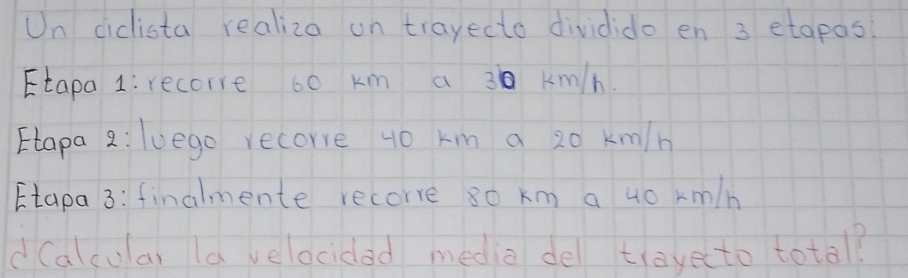 Un ciclista realiza un trayecto dividido en 3 etapas:
Etapa 1: recorre 60 km a 30 km/h.
Etapa 2: luego recorre 40 km a 20 km/h
Etapa 3: finalmente recorre 80 km a 40 km/h
¿Calcular la velocidad media del trayecto total?